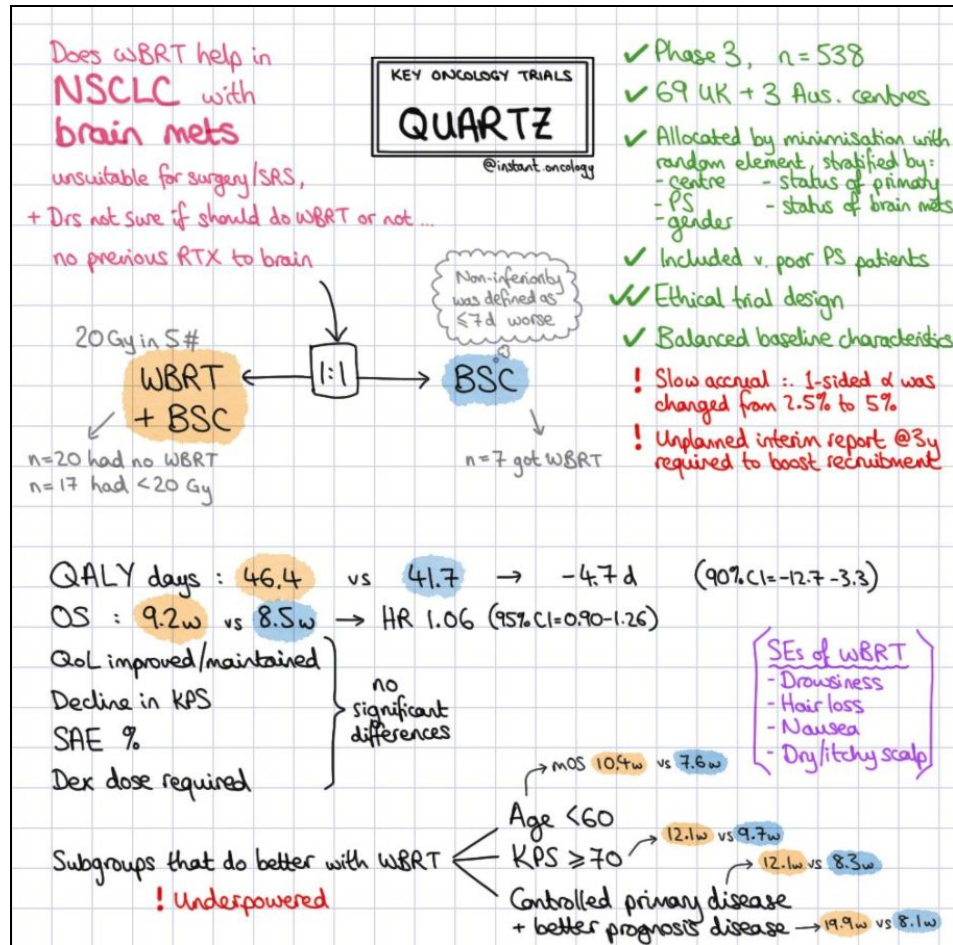 Does WBRT help in
NSCLC with
brain mets
unsuitable for surgery/SRS,
+ Drs not sure if should do WBRT or not ...
no previous RTX to brain
KEY ONCOLOGY TRIALS
QUARTZ
@instant.oncology
✓ Phase 3, n = 538
✓ 69 UK + 3 Aus. centres
✓ Allocated by minimisation with
random element, stratified by:
- centre - status of primary
- PS - status of brain mets
- gender
✓ Included v. poor PS patients
✓✓ Ethical trial design
✓ Balanced baseline characteristics
! Slow accrual ∴ 1-sided α was
changed from 2.5% to 5%
! Unplanned interim report @3y
required to boost recruitment
Non-inferiority
was defined as
≤7d worse
20 Gy in 5#
WBRT
+ BSC
1:1
BSC
n=20 had no WBRT
n=17 had <20 Gy
n=7 got WBRT
QALY days : 46.4 vs 41.7 → -4.7 d (90% CI = -12.7 - 3.3)
OS : 9.2w vs 8.5w → HR 1.06 (95% CI = 0.90 - 1.26)
QoL improved/maintained
Decline in KPS
SAE %
Dex dose required
no
significant
differences
SEs of WBRT
- Drowsiness
- Hair loss
- Nausea
- Dry/itchy scalp
Subgroups that do better with WBRT
! Underpowered
Age <60 → mOS 10.4w vs 7.6w
KPS ≥70 → 12.1w vs 9.7w
Controlled primary disease → 12.1w vs 8.3w
+ better prognosis disease → 19.9w vs 8.1w